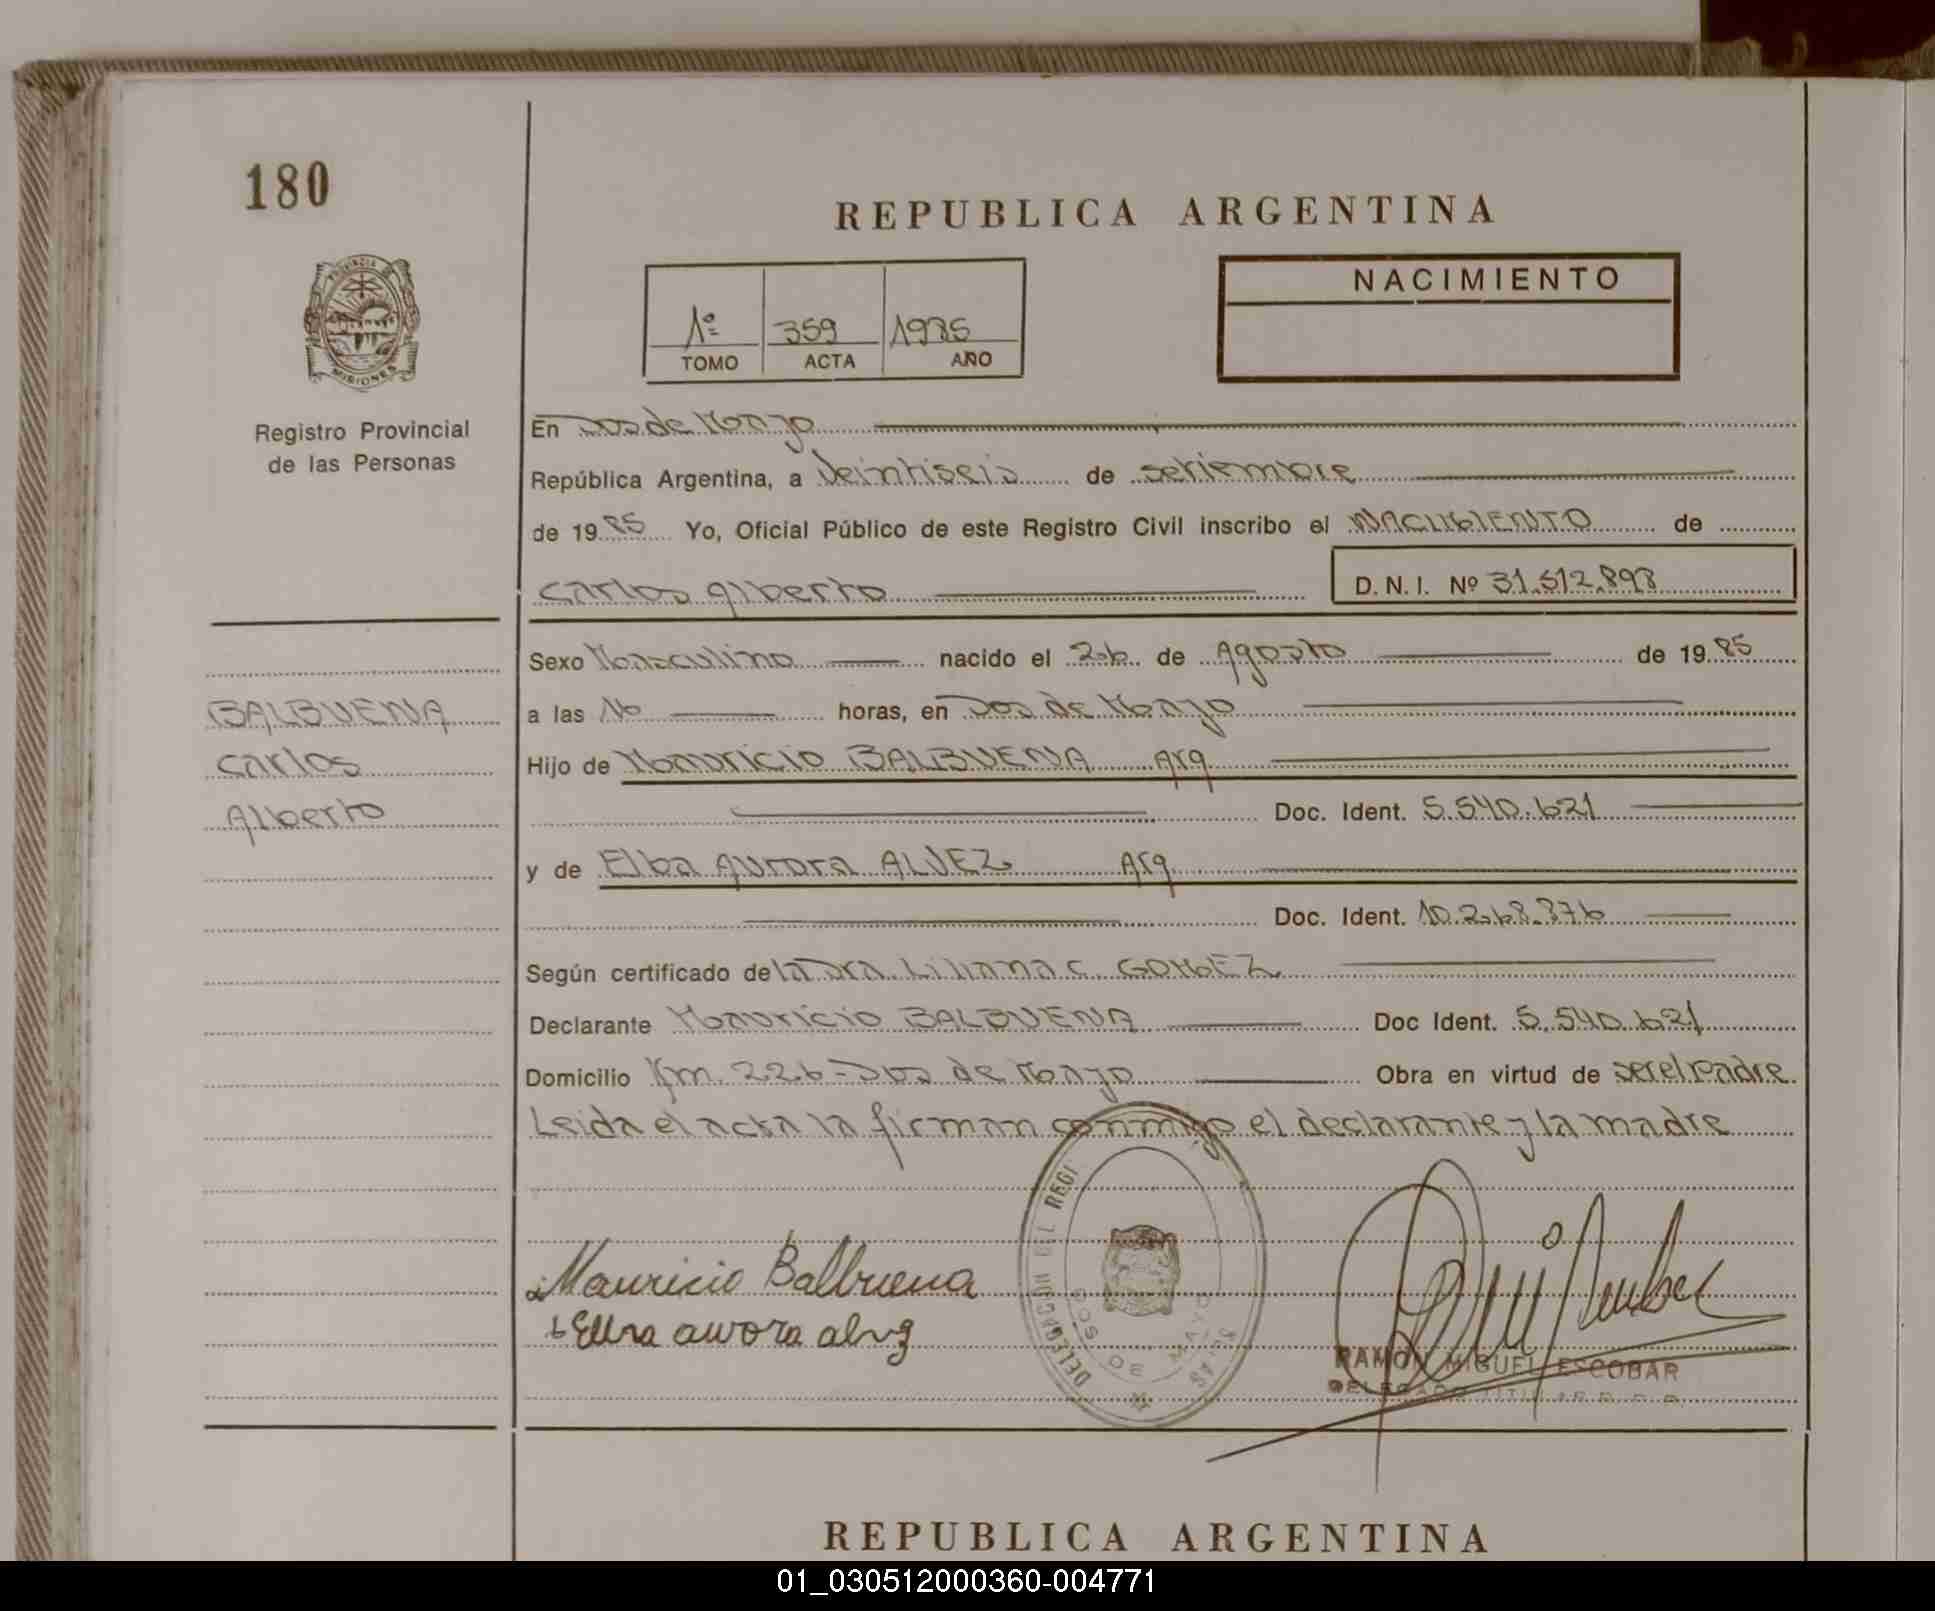 180
REPUBLICA ARGENTINA
NACIMIENTO
1º 359 1985
TOMO ACTA AÑO
PROVINCIA DE
MISIONES
Registro Provincial
de las Personas
En Dos de Mayo
República Argentina, a Veintiseis de setiembre
de 1985 Yo, Oficial Público de este Registro Civil inscribo el NACIMIENTO de
Carlos Alberto D. N. I. Nº 31.512.898
Sexo Masculino nacido el 26 de Agosto de 1985
BALBUENA
Carlos
Alberto
a las No horas, en Dos de Mayo
Hijo de Mauricio BALBUENA Arg
Doc. Ident. 5.540.621
y de Elba Aurora ALVEZ Arg
Doc. Ident. 10.268.876
Según certificado de la Dra. Liliana C. GOMEZ
Declarante Mauricio BALBUENA Doc Ident. 5.540.621
Domicilio Km. 226-Dos de Mayo Obra en virtud de ser el Padre
Leida el acta la firman conmigo el declarante y la madre
Mauricio Balbuena
Elba aurora alvez
DELEGACION DEL REGI
DOS DE MAYO
RAMON MIGUEL ESCOBAR
DELEGADO TITULAR R. P. P.
REPUBLICA ARGENTINA
01_030512000360-004771